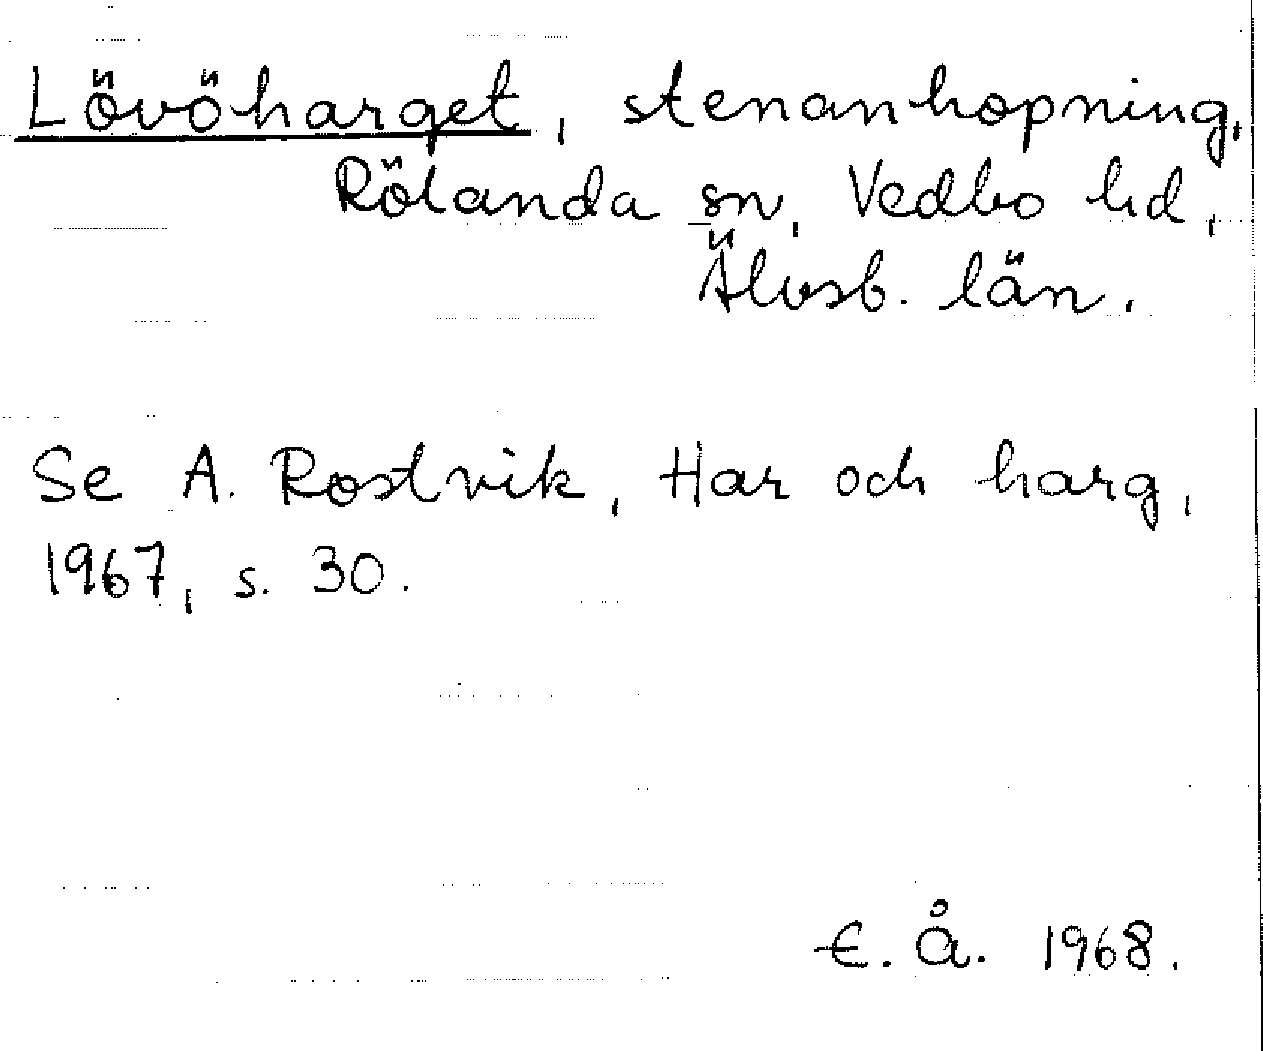 Lövöharget, stenanhopning,
Rölanda sn, Vedbo hd,
Älvsb. län.
Se A. Rostvik, Har och harg,
1967, s. 30.
E. Å. 1968.